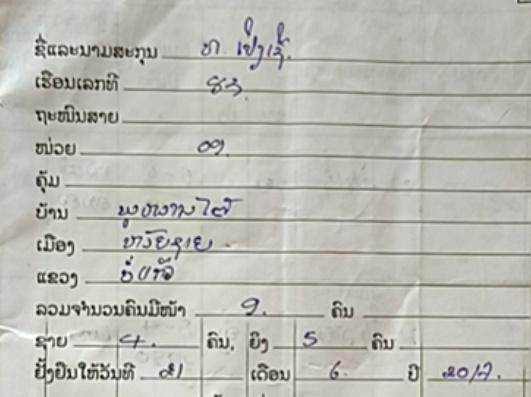 ຊື່ແລະນາມສະກຸນ ທ. ເປັ່ງເຊັ້.
ເຮືອນເລກທີ
ຖະໜົນສາຍ
ໜ່ວຍ 09.
ຄຸ້ມ
ບ້ານ ພູຫວານໃຕ້
ເມືອງ ຫ້ວຍຊາຍ
ແຂວງ ບໍ່ແກ້ວ
ລວມຈຳນວນຄົນມີໜ້າ 9. ຄົນ
ຊາຍ 4. ຄົນ, ຍິງ 5 ຄົນ
ຢັ້ງຢືນໃຫ້ວັນທີ ເດືອນ 6. ປີ 2017.